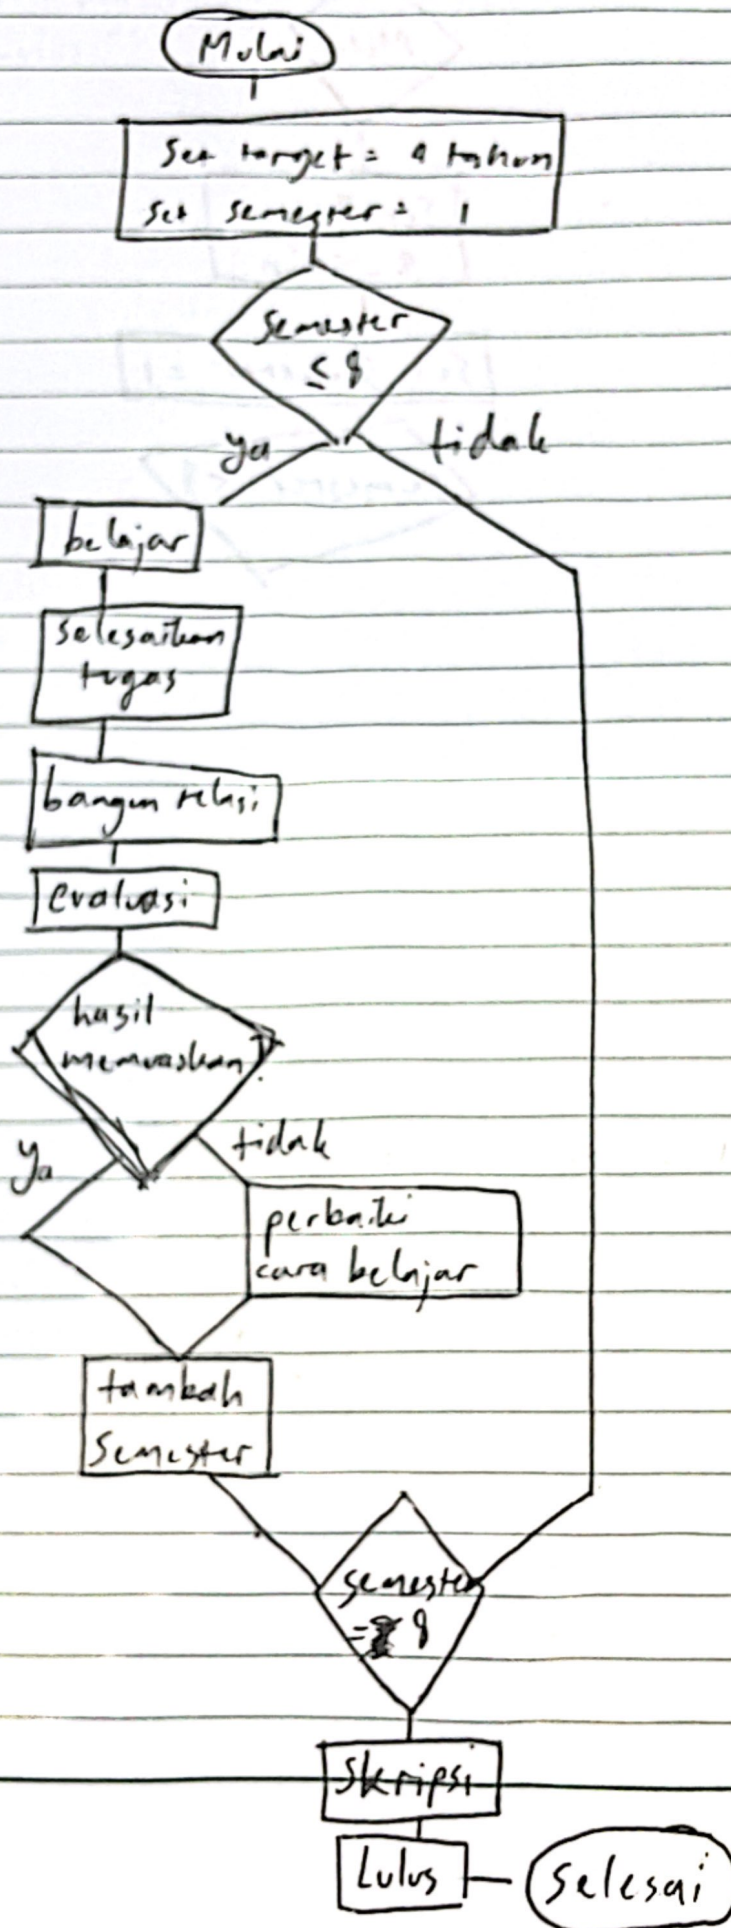 Mulai
Set target = 4 tahun
Set semester = 1
Semester
≤ 8
ya
tidak
belajar
selesaikan
tugas
bangun relasi
evaluasi
hasil
memuaskan?
ya
tidak
perbaiki
cara belajar
tambah
Semester
semester
= 8
Skripsi
Lulus
Selesai